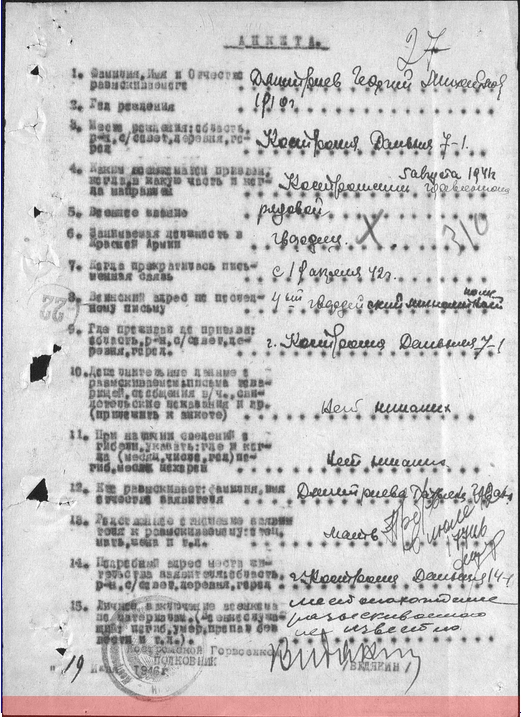 АНКЕТА.
27
1. Фамилия, Имя и Отчество Дмитриев Георгий
разыскиваемого
2. Год рождения 1910г
3. Место рождения: область,
р-н, с/совет, деревня, го-
род Кострома Дальняя 7-1.
4. Каким военкоматом призван,
когда, в какую часть и ког-
да направлен Костромским 5 августа 1941
5. Военное звание рядовой
6. Занимаемая должность в
Красной Армии гвардеец.
7. Когда прекратилась пись-
менная связь с 19 апреля 42г.
8. Воинский адрес по послед-
ному письму 4ый гвардейский минометный полк
9. Где проживал до призыва:
область, р-н, с/совет, де-
ревня, город. г. Кострома Дальняя 7-1
10. Дополнительные данные о
разыскиваемом: письма това-
рищей, сообщения в/ч., сви-
детельские показания и др.
(приложить к анкете) Нет никаких
11. При наличии сведений о
гибели, указать: где и ког-
да (месяц, число, год) по-
гиб, место похорон Нет никаких
12. Кто разыскивает: фамилия, имя
и отчество заявителя Дмитриева
13. Родственное отношение заяви-
теля к разыскиваемому: отец,
мать, жена и т.д. мать
14. Подробный адрес места жи-
тельства заявителя: область,
р-н, с/совет, деревня, город г. Кострома Дальняя
15. Личное заключение военкома
местонахождение
разыскиваемого
не известно
погиб, умер, пропал без
вести и т.д.).
Костромской Горвоенком
ПОЛКОВНИК
/ВИДЯКИН/
"19" 1946г.